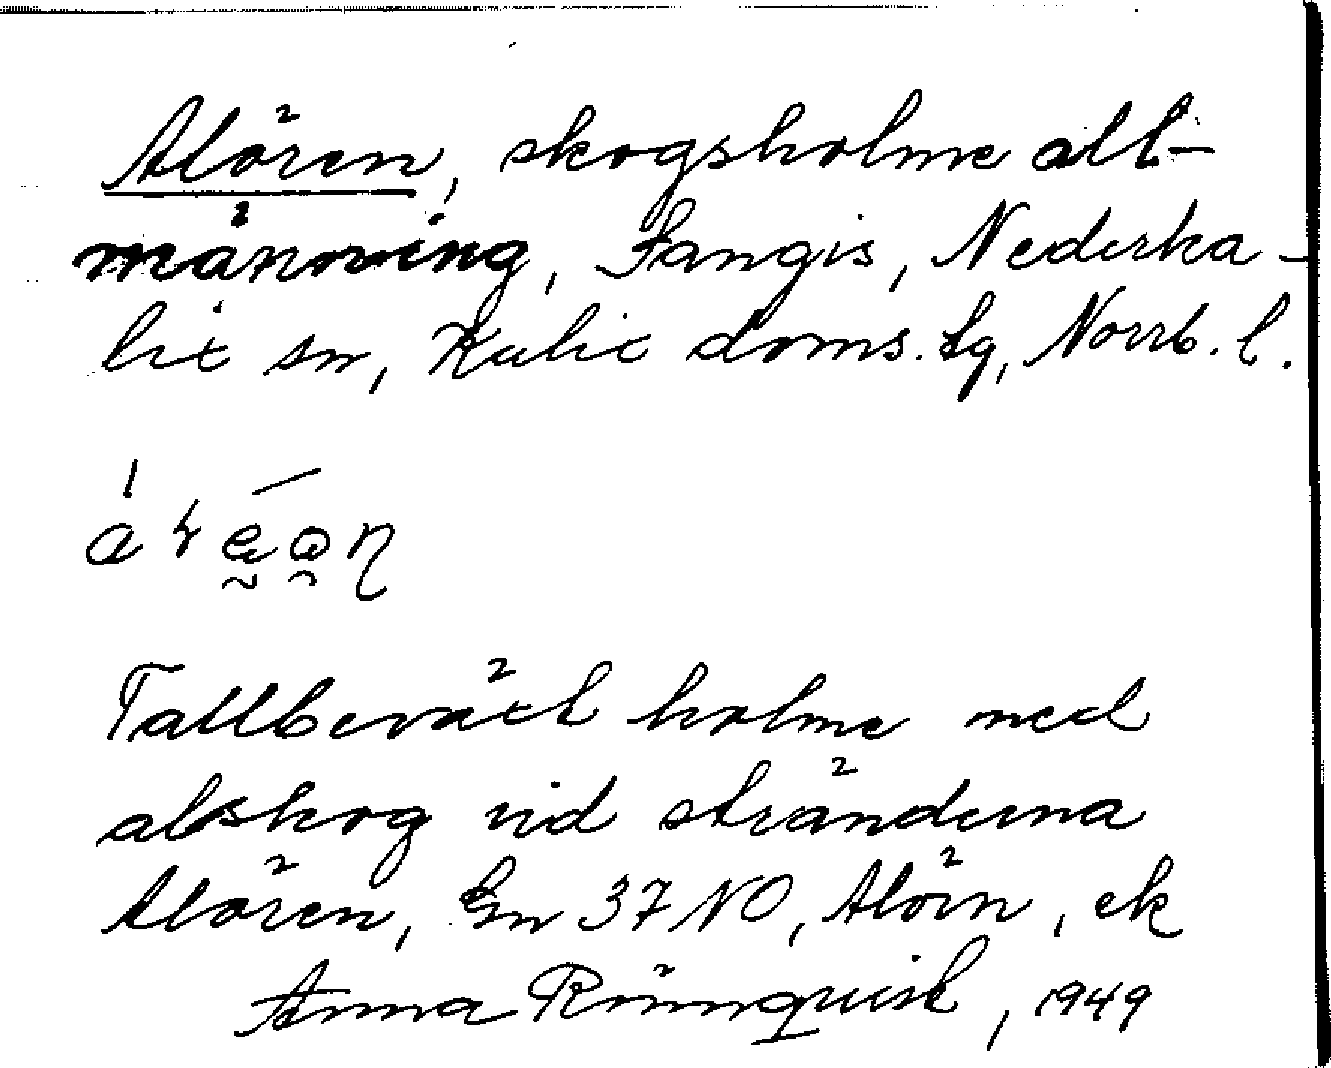 Alören, skogsholme all-
männing, Sangis, Nederka-
lix sn, Kalix doms. lg, Norrb. l.
Tallbeväxt holme med
alskog vid stränderna
Alören, Gn 37 NO, Alörn, ek
Anna Rönnquist, 1949